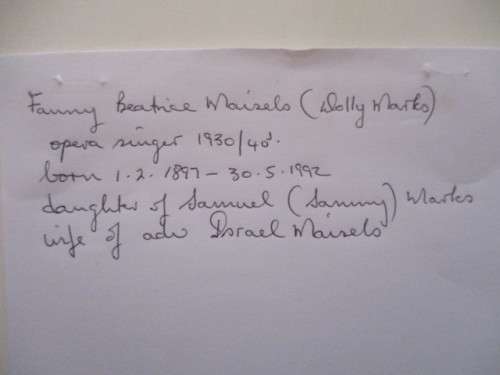 Fanny Beatrice Maisels (Dolly Marks)
opera singer 1930/40s.
born 1.2.1897 - 30.5.1992
daughter of Samuel (Sammy) Marks
wife of adv Israel Maisels